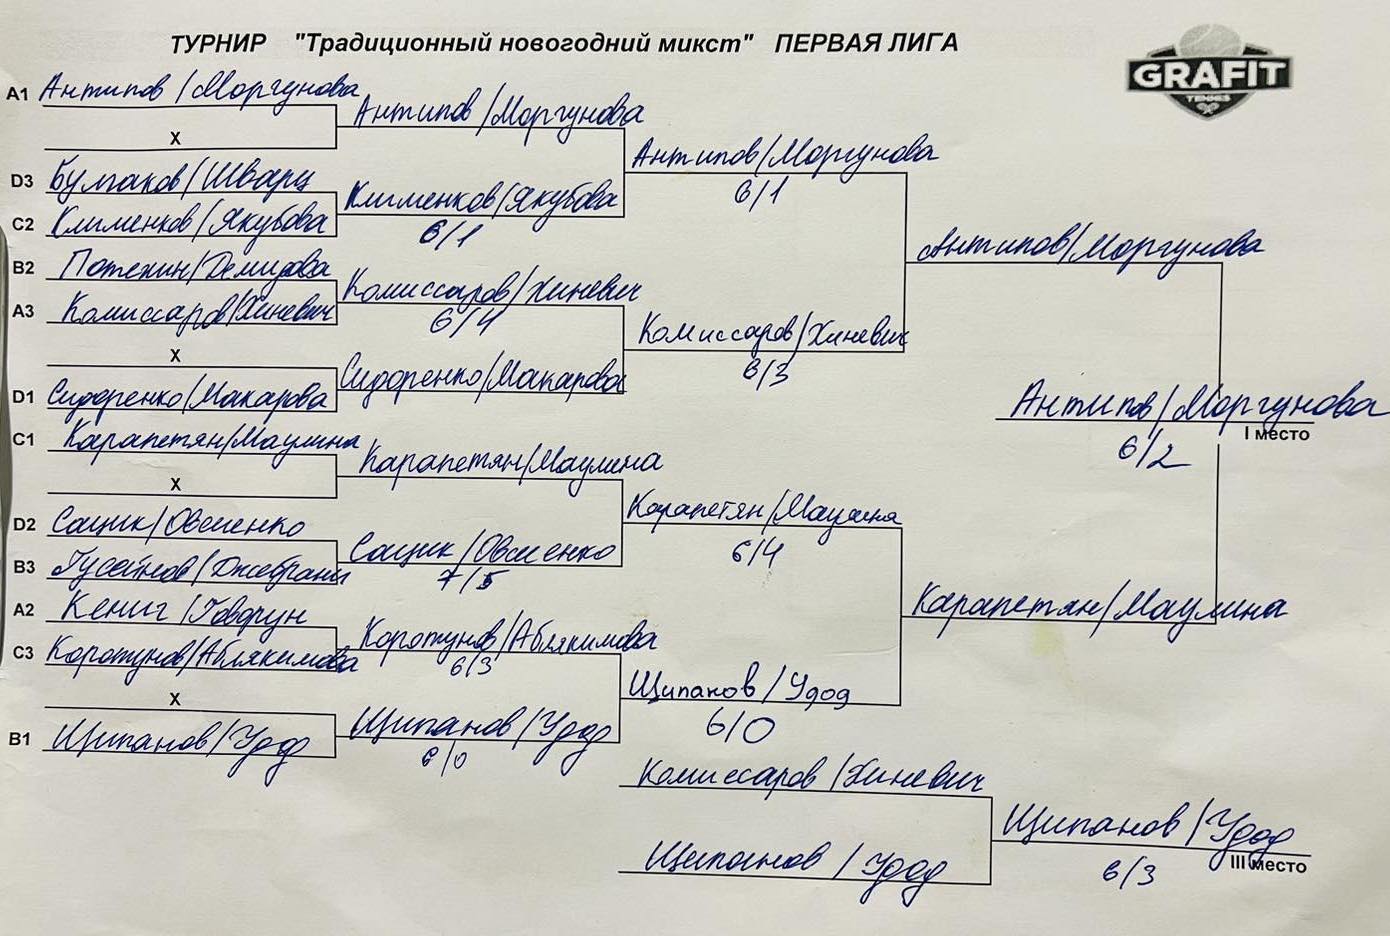 ТУРНИР "Традиционный новогодний микст" ПЕРВАЯ ЛИГА
GRAFIT
TENNIS
A1 Антипов/Моргунова
X
Антипов/Моргунова
D3 Булгаков/Шварц
C2 Клименков/Якубова
Клименков/Якубова
6/1
Антипов/Моргунова
6/1
B2 Потехин/Демидова
A3 Комиссаров/Хиневич
Комиссаров/Хиневич
6/4
X
D1 Сидоренко/Макарова
Сидоренко/Макарова
Комиссаров/Хиневич
6/3
Антипов/Моргунова
C1 Карапетян/Маулина
X
Карапетян/Маулина
D2 Сащик/Овсиенко
B3 Гусейнов/Джебраил
Сащик/Овсиенко
7/5
Карапетян/Маулина
6/4
A2 Кениг/Говорун
C3 Коротунов/Аблякимова
Коротунов/Аблякимова
6/3
X
B1 Щипанов/Удод
Щипанов/Удод
6/0
Щипанов/Удод
6/0
Карапетян/Маулина
Антипов/Моргунова
I место
6/2
Комиссаров/Хиневич
Щипанов/Удод
Щипанов/Удод
III место
6/3